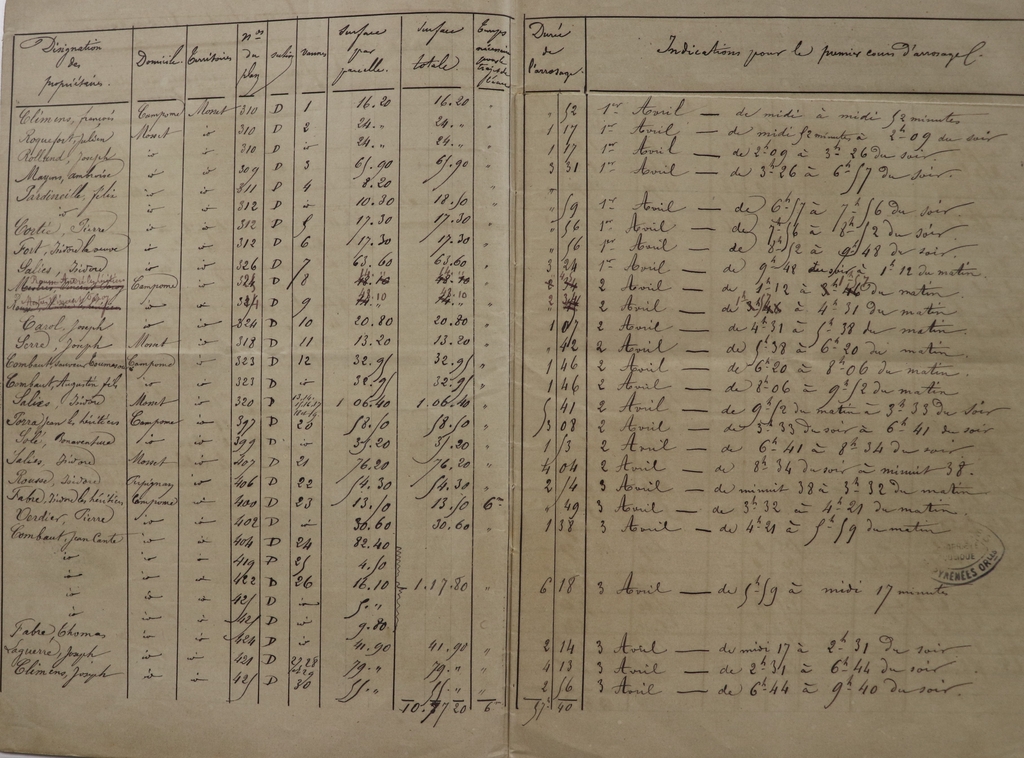 Désignation des propriétaires. Domicile Territoires Nos du plan section vannes Surface par parcelle. Surface totale. Durée de l'arrosage. Indications pour le premier cours d'arrosage.
Climens, françois Campome Mosset 310 D 1 16.20 16.20 " " 52 1er Avril — de midi à midi 52 minutes
Roquefort, Julien Mosset id 310 D 2 24. " 24. " " 1 17 1er Avril — de midi 52 minutes à 2h 09 du soir
Rolland, Joseph id id 310 D id 24. " 24. " " 1 17 1er Avril — de 2h 09 à 3h 26 du soir.
Mayens, ambroise id id 309 D 3 65.90 65.90 " 3 31 1er Avril — de 3h 26 à 6h 57 du soir.
Pardineille, félix id id 311 D 4 8.20
id id 312 D id 10.30 18.50 " " 59 1er Avril — de 6h 57 à 7h 56 du soir.
Cortie, Pierre id id 312 D 5 17.30 17.30 " " 56 1er Avril — de 7h 56 à 8h 52 du soir.
Fort, Isidore la veuve id id 312 D 6 17.30 17.30 " " 56 1er Avril — de 8h 52 à 9h 48 du soir.
Salies, Isidore id id 326 D 7 63.60 63.60 " 3 24 1er Avril — de 9h 48 du soir à 1h 12 du matin.
Campome id D 8 2 Avril — du matin.
id id D 9 2 Avril — à 4h 31 du matin
Carol, Joseph id id 324 D 10 20.80 20.80 " 1 07 2 Avril — de 4h 31 à 5h 38 du matin.
Serre, Joseph Mosset id 318 D 11 13.20 13.20 " " 42 2 Avril — de 5h 38 à 6h 20 du matin.
Combaut, Campome id 323 D 12 32.95 32.95 " 1 46 2 Avril — de 6h 20 à 8h 06 du matin.
Combaut, Augustin fils id 323 D id 32.95 32.95 " 1 46 2 Avril — de 8h 06 à 9h 52 du matin
Salies, Isidore Mosset id 320 D 1.06.40 1.06.40 " 5 41 2 Avril — de 9h 52 du matin à 3h 33 du soir
Campome id 397 D 20 58.50 58.50 " 3 08 2 Avril — de 3h 33 du soir à 6h 41 du soir
Solé, Bonaventure id id 399 D id 35.20 35.20 " 1 53 2 Avril — de 6h 41 à 8h 34 du soir
Salies, Isidore Mosset id 407 D 21 76.20 76.20 " 4 04 2 Avril — de 8h 34 du soir à minuit 38.
Rousse, Isidore Perpignan id 406 D 22 54.30 54.30 " 2 54 3 Avril — de minuit 38 à 3h 32 du matin
Fabre, Isidore les héritiers Campome id 400 D 23 13.50 13.50 6 " 49 3 Avril — de 3h 32 à 4h 21 du matin.
Verdier, Pierre id id 402 D id 30.60 30.60 " 1 38 3 Avril — de 4h 21 à 5h 59 du matin
Combaut, Jean id id 404 D 24 82.40
id id id 419 D 25 4.50
id id id 422 D 26 16.10 1.17.80 " 6 18 3 Avril — de 5h 59 à midi 17 minutes
id id id 425 D id 5. "
id id id D id 9.80
Fabre, Thomas id id 424 D id 41.90 41.90 " 2 14 3 Avril — de midi 17 à 2h 31 du soir
Laguerre, Joseph id id 421 D 27.28 79. " 79. " " 4 13 3 Avril — de 2h 31 à 6h 44 du soir
Climens, Joseph id id 425 D 30 55. " 55. " " 2 56 3 Avril — de 6h 44 à 9h 40 du soir.
20 6 57h 40
PYRÉNÉES ORles